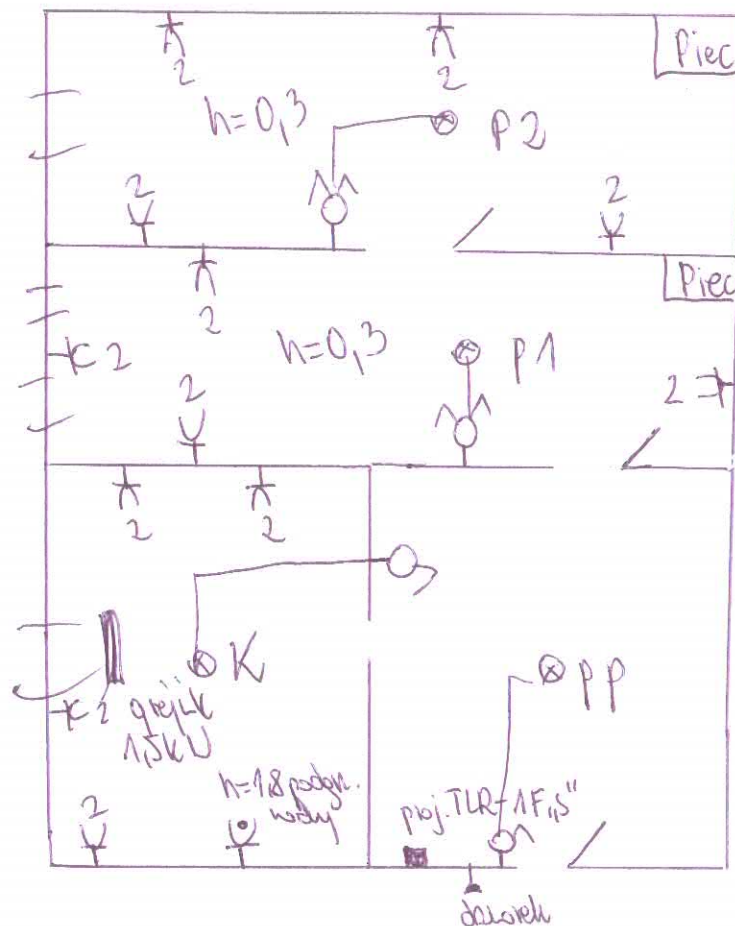 2
2
Piec
h=0,3
P2
2
2
2
Piec
K 2
h=0,3
P1
2
2
2
2
K
PP
K 2
grzejnik
1,5kW
h=1,8 podgrz.
wody
2
proj. TLR-1F „S”
dzwonek